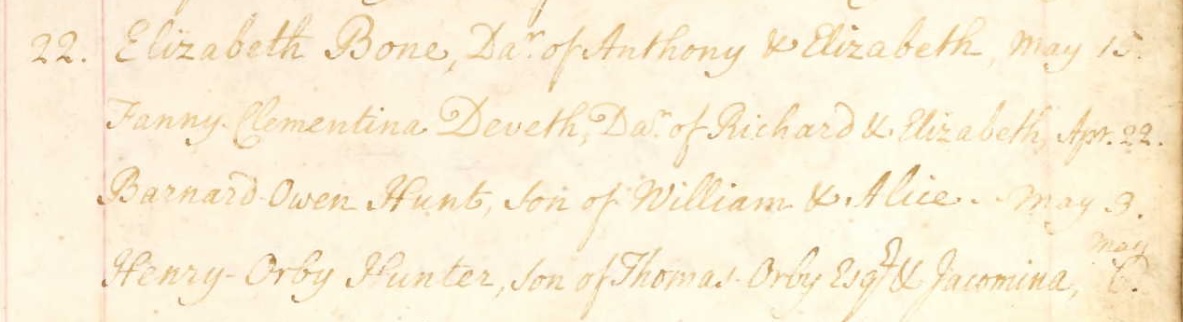 22. Elizabeth Bone, Dar. of Anthony & Elizabeth, May 15.
Fanny-Clementina Deveth, Dar. of Richard & Elizabeth, Apr. 22.
Barnard-Owen Hunt, Son of William & Alice. May 3.
Henry-Orby Hunter, Son of Thomas-Orby Esqr. & Jacomina, May 6.